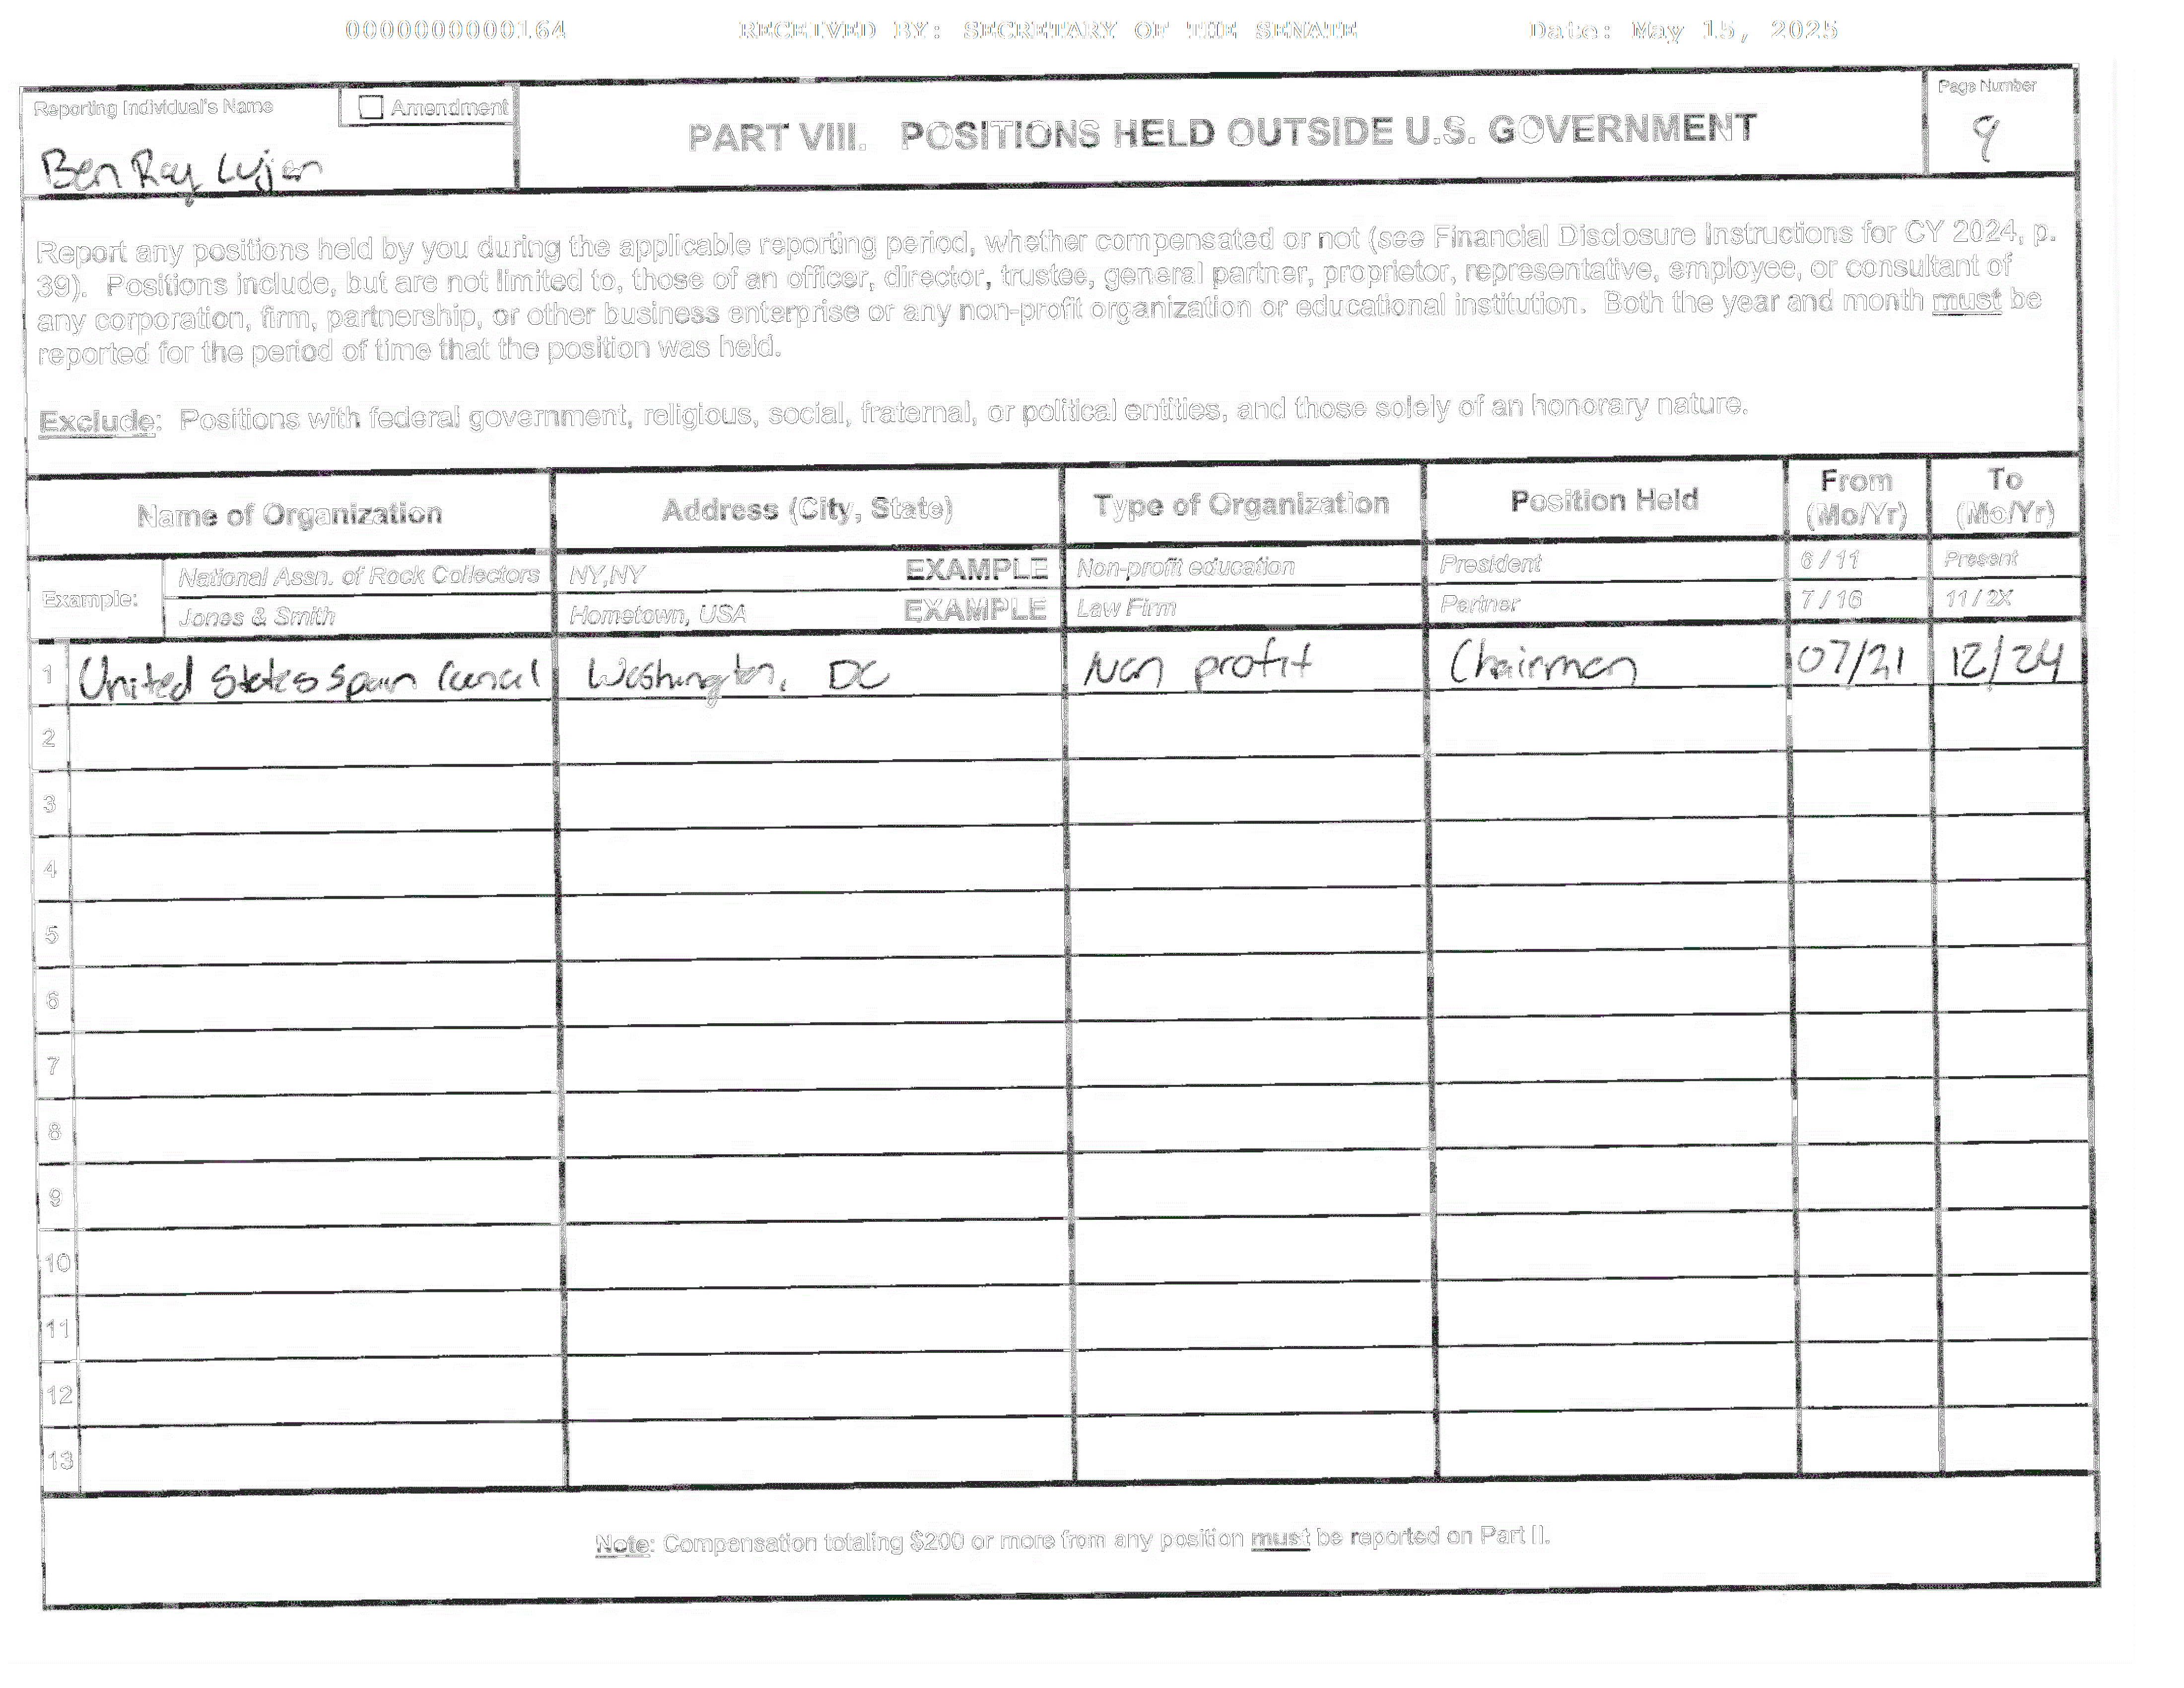 0000000000164 RECEIVED BY: SECRETARY OF THE SENATE Date: May 15, 2025
Reporting Individual's Name Amendment
Ben Ray Lujan
PART VIII. POSITIONS HELD OUTSIDE U.S. GOVERNMENT
Page Number
9
Report any positions held by you during the applicable reporting period, whether compensated or not (see Financial Disclosure Instructions for CY 2024, p.
39). Positions include, but are not limited to, those of an officer, director, trustee, general partner, proprietor, representative, employee, or consultant of
any corporation, firm, partnership, or other business enterprise or any non-profit organization or educational institution. Both the year and month must be
reported for the period of time that the position was held.
Exclude: Positions with federal government, religious, social, fraternal, or political entities, and those solely of an honorary nature.
Name of Organization Address (City, State) Type of Organization Position Held From (Mo/Yr) To (Mo/Yr)
Example: National Assn. of Rock Collectors NY,NY EXAMPLE Non-profit education President 6 / 11 Present
Jones & Smith Hometown, USA EXAMPLE Law Firm Partner 7 / 16 11 / 2X
1 United States Spain Council Washington, DC Non profit Chairman 07/21 12/24
2
3
4
5
6
7
8
9
10
11
12
13
Note: Compensation totaling $200 or more from any position must be reported on Part II.